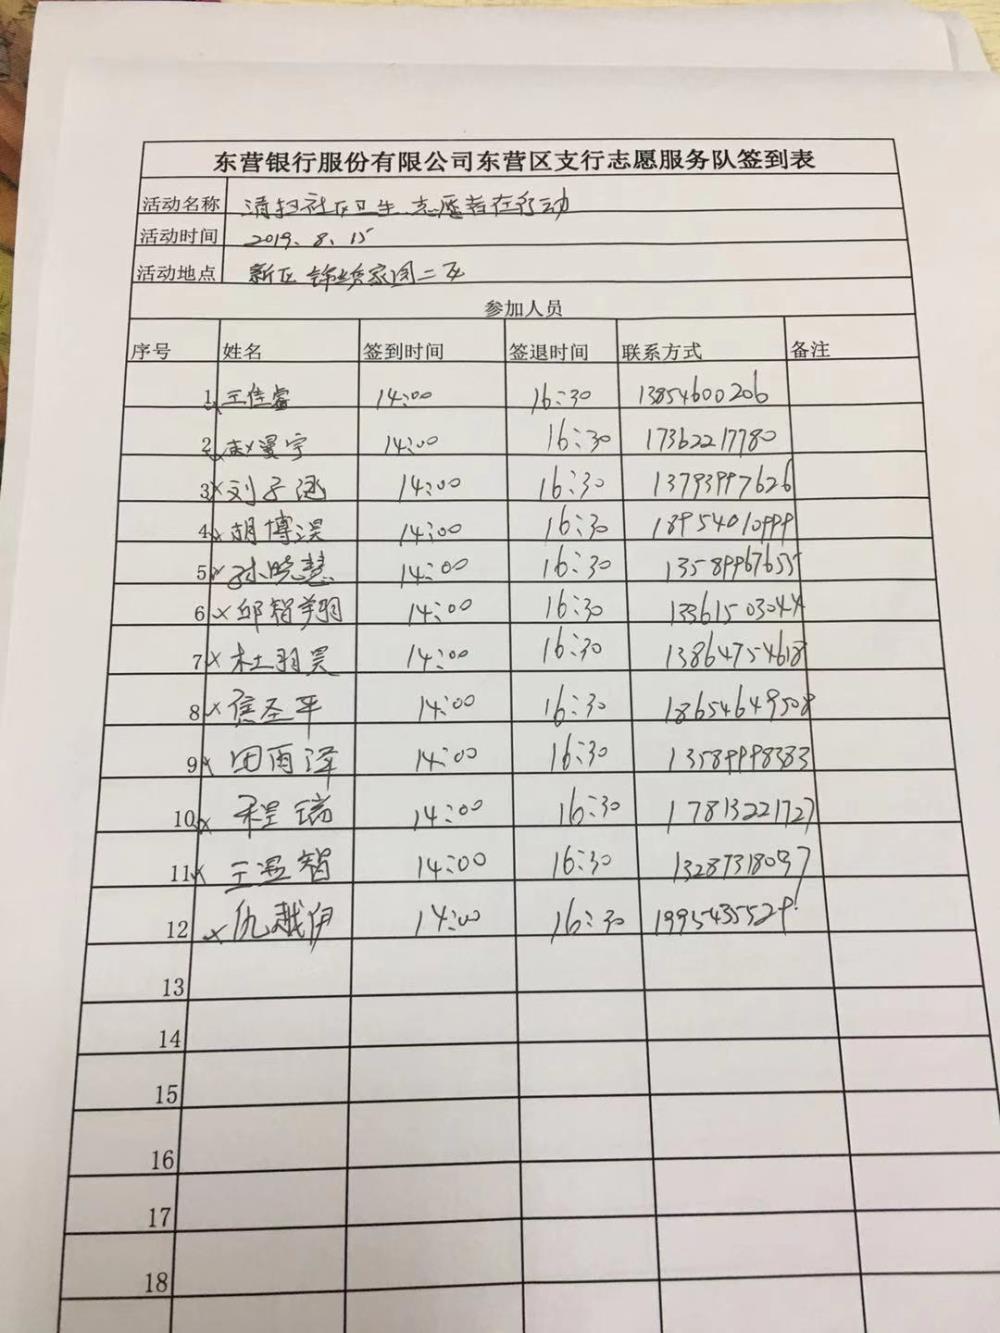 东营银行股份有限公司东营区支行志愿服务队签到表
活动名称 清扫社区卫生,志愿者在行动
活动时间 2019.8.15
活动地点 新区锦绣家园二区
参加人员
序号 姓名 签到时间 签退时间 联系方式 备注
1 × 王佳睿 14:00 16:30 13854600206
2 × 赵曼宇 14:00 16:30 17362217780
3 × 刘子涵 14:00 16:30 13793997626
4 × 胡博淏 14:00 16:30 18954010999
5 × 孙晓慧 14:00 16:30 13589967655
6 × 邱智翔 14:00 16:30 13361503044
7 × 杜羽昊 14:00 16:30 13864754618
8 × 焦圣平 14:00 16:30 18654649508
9 × 田雨泽 14:00 16:30 13589998383
10 × 程瑞 14:00 16:30 17813221727
11 × 王温智 14:00 16:30 13287318097
12 × 仇越伊 14:00 16:30 19954355529
13
14
15
16
17
18